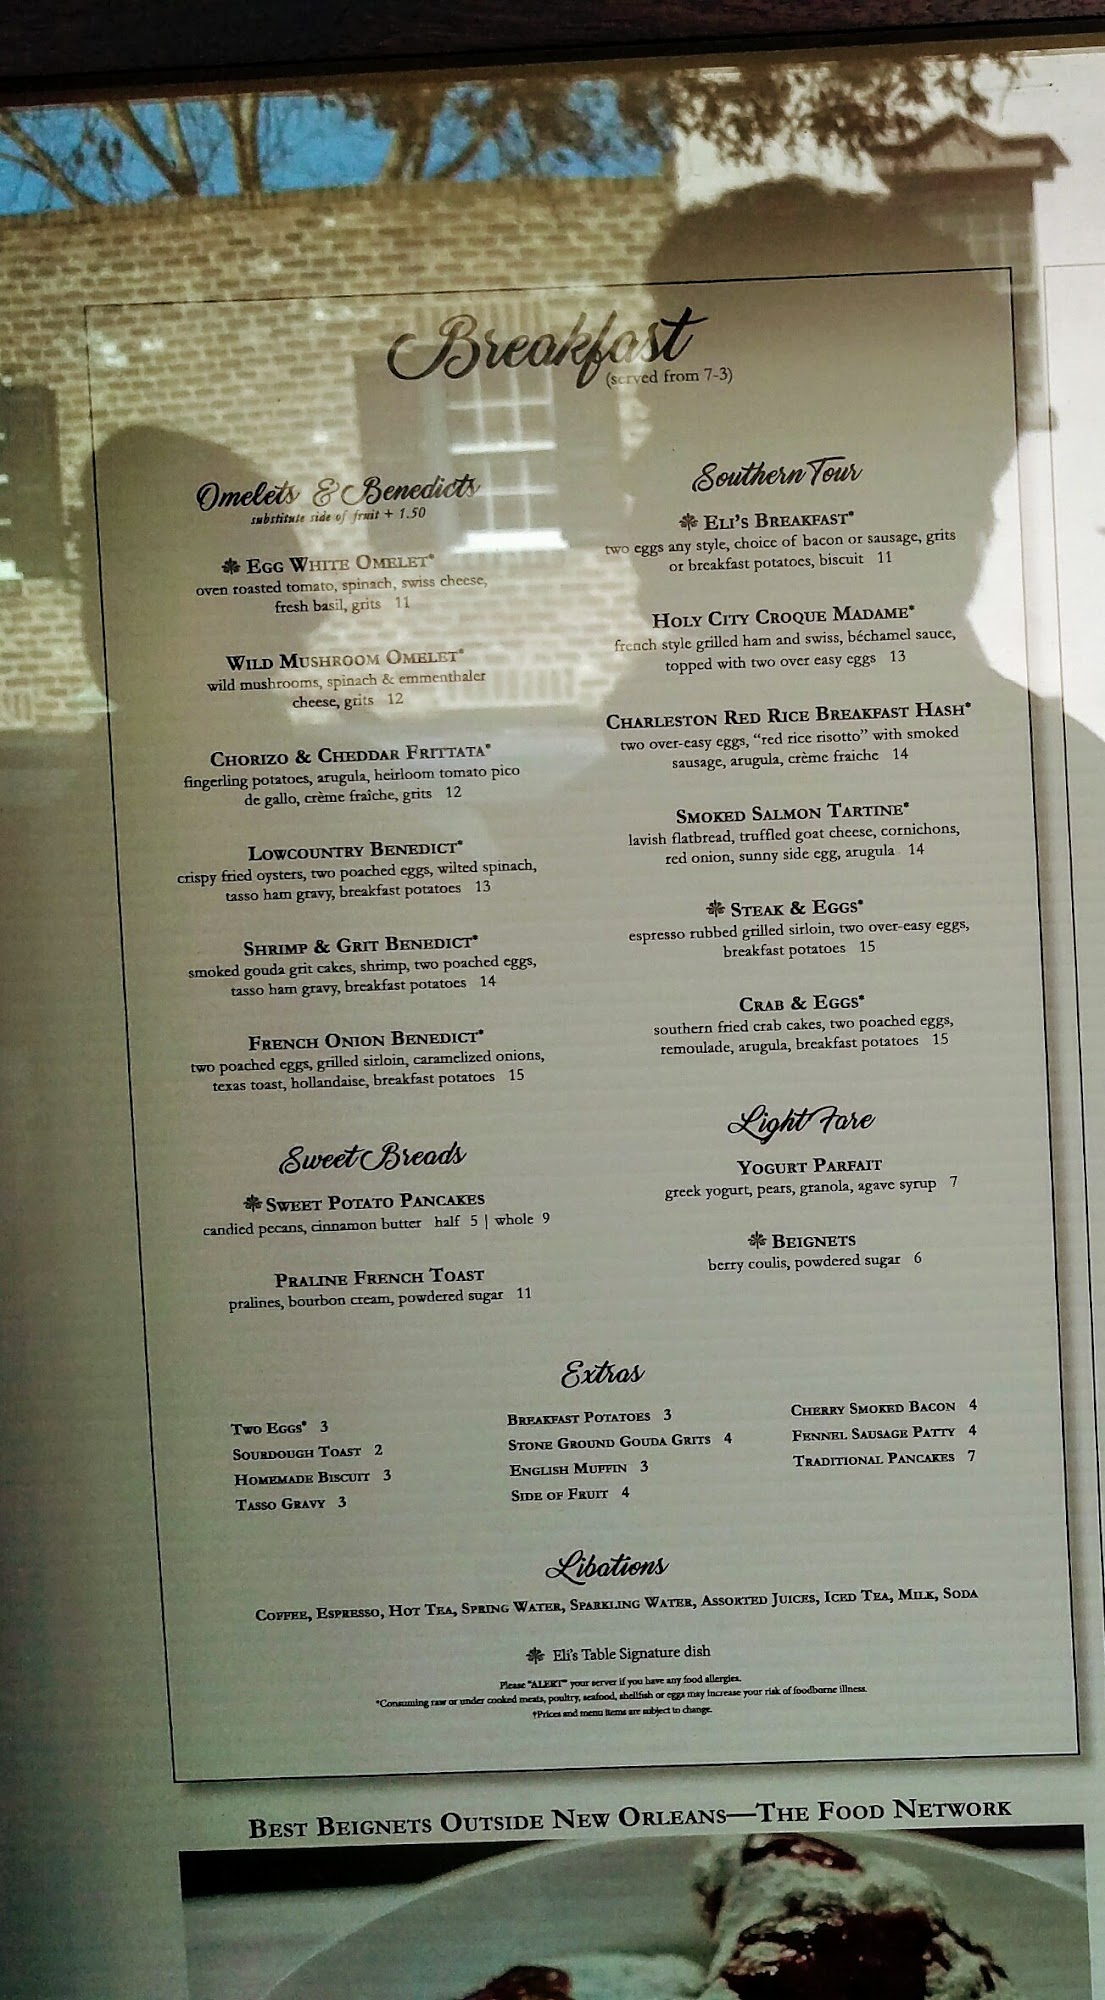 Breakfast
(served from 7-3)
Omelets & Benedicts
substitute side of fruit + 1.50
Egg White Omelet*
oven roasted tomato, spinach, swiss cheese,
fresh basil, grits 11
Wild Mushroom Omelet*
wild mushrooms, spinach & emmenthaler
cheese, grits 12
Chorizo & Cheddar Frittata*
fingerling potatoes, arugula, heirloom tomato pico
de gallo, crème fraîche, grits 12
Lowcountry Benedict*
crispy fried oysters, two poached eggs, wilted spinach,
tasso ham gravy, breakfast potatoes 13
Shrimp & Grit Benedict*
smoked gouda grit cakes, shrimp, two poached eggs,
tasso ham gravy, breakfast potatoes 14
French Onion Benedict*
two poached eggs, grilled sirloin, caramelized onions,
texas toast, hollandaise, breakfast potatoes 15
Sweet Breads
Sweet Potato Pancakes
candied pecans, cinnamon butter half 5 | whole 9
Praline French Toast
pralines, bourbon cream, powdered sugar 11
Southern Tour
Eli's Breakfast*
two eggs any style, choice of bacon or sausage, grits
or breakfast potatoes, biscuit 11
Holy City Croque Madame*
french style grilled ham and swiss, béchamel sauce,
topped with two over easy eggs 13
Charleston Red Rice Breakfast Hash*
two over-easy eggs, "red rice risotto" with smoked
sausage, arugula, crème fraiche 14
Smoked Salmon Tartine*
lavish flatbread, truffled goat cheese, cornichons,
red onion, sunny side egg, arugula 14
Steak & Eggs*
espresso rubbed grilled sirloin, two over-easy eggs,
breakfast potatoes 15
Crab & Eggs*
southern fried crab cakes, two poached eggs,
remoulade, arugula, breakfast potatoes 15
Light Fare
Yogurt Parfait
greek yogurt, pears, granola, agave syrup 7
Beignets
berry coulis, powdered sugar 6
Extras
Two Eggs* 3
Sourdough Toast 2
Homemade Biscuit 3
Tasso Gravy 3
Breakfast Potatoes 3
Stone Ground Gouda Grits 4
English Muffin 3
Side of Fruit 4
Cherry Smoked Bacon 4
Fennel Sausage Patty 4
Traditional Pancakes 7
Libations
Coffee, Espresso, Hot Tea, Spring Water, Sparkling Water, Assorted Juices, Iced Tea, Milk, Soda
Eli's Table Signature dish
Please "ALERT" your server if you have any food allergies.
*Consuming raw or under cooked meats, poultry, seafood, shellfish or eggs may increase your risk of foodborne illness.
†Prices and menu items are subject to change.
Best Beignets Outside New Orleans—The Food Network